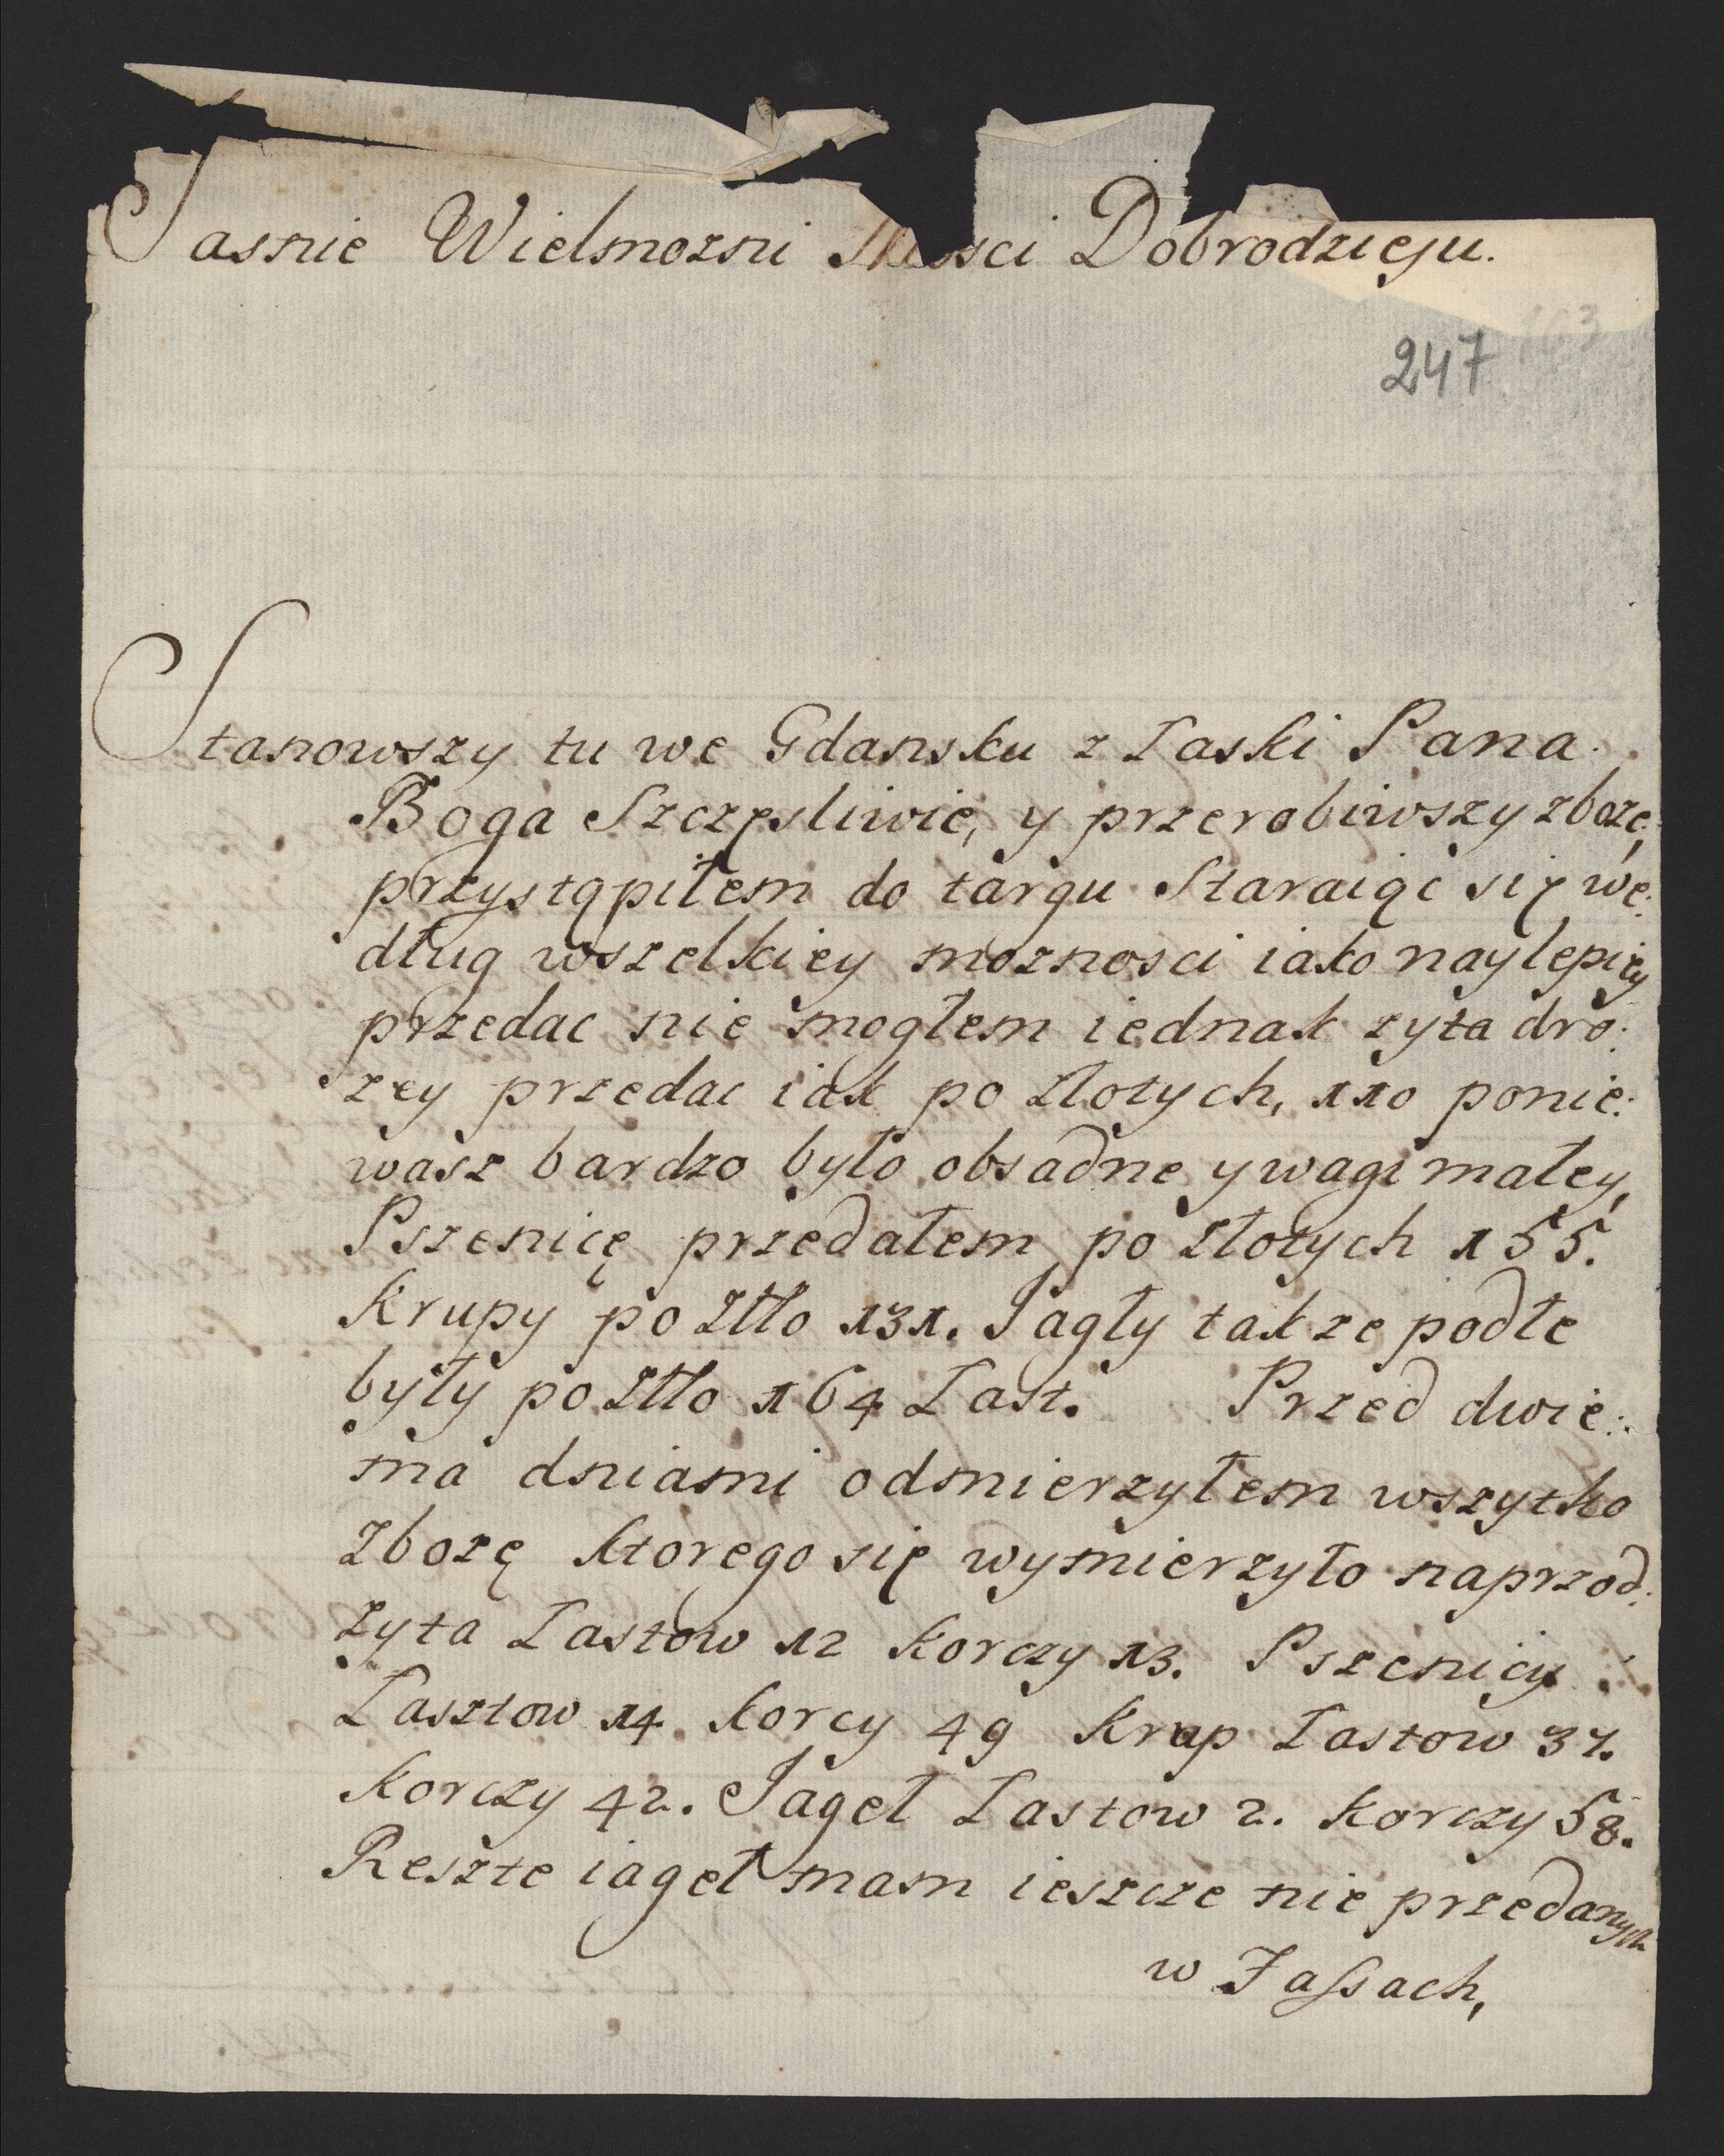 Jasnie Wielmozni Mosci Dobrodzieju.
247
Stanowszy tu we Gdansku z Łaski Pana
Boga Szczęsliwie, y przerobiwszy zboże,
przystąpiłem do targu Staraiąc się we:
dług wszelkiey moznosci iako naylepiey
przedac nie mogłem iednak zyta dro:
zey przedac iak po Złotych, 110 ponie:
wasz bardzo było obsadne y wagi małey,
Pszenicę przedałem po Złotych 155.
Krupy po Złło 131. Jagły takze podłe
były po Złło 164 Łast. Przed dwie:
ma dniami odmierzyłem wszytko
Zbożę ktorego się wymierzyło naprzod:
zyta Łastow 12 korczy 13. Pszenicy
Łasztow 14. korcy 49 krup Łastow 37.
korczy 42. Jageł Łastow 2. korczy 58.
Reszte iageł mam ieszcze nie przedanych
w Fassach,